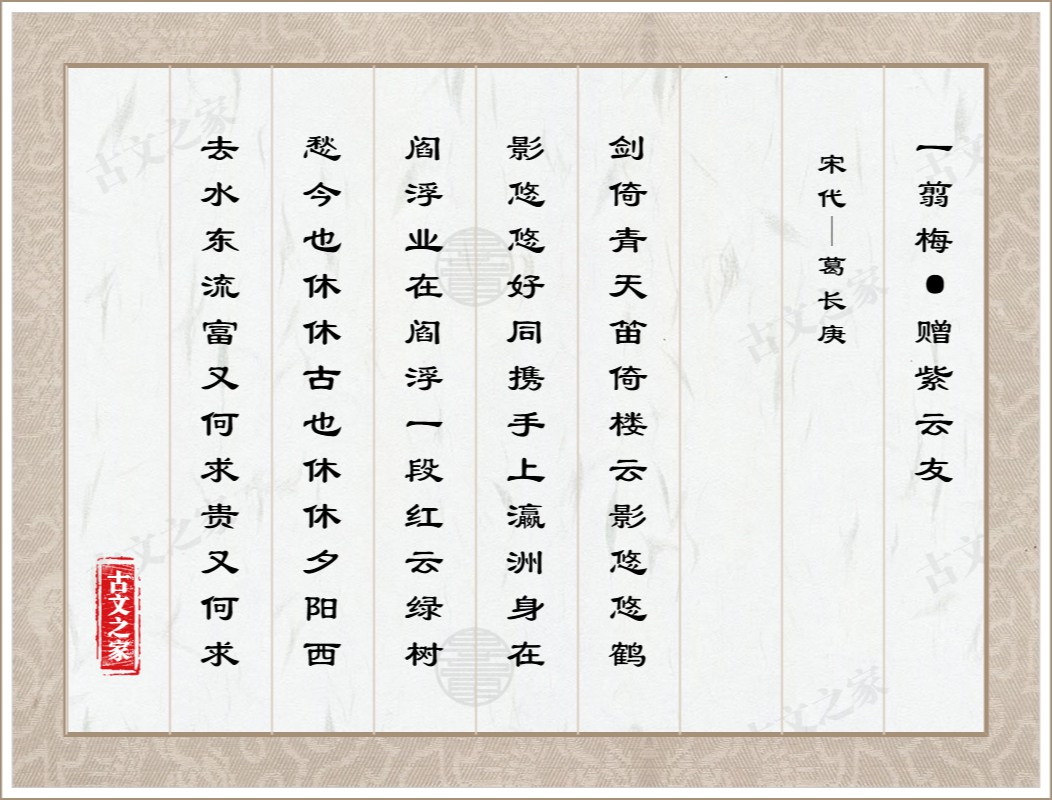 一翦梅●赠紫云友
宋代—葛长庚
剑倚青天笛倚楼云影悠悠鹤
影悠悠好同携手上瀛洲身在
阎浮业在阎浮一段红云绿树
愁今也休休古也休休夕阳西
去水东流富又何求贵又何求
古文之家